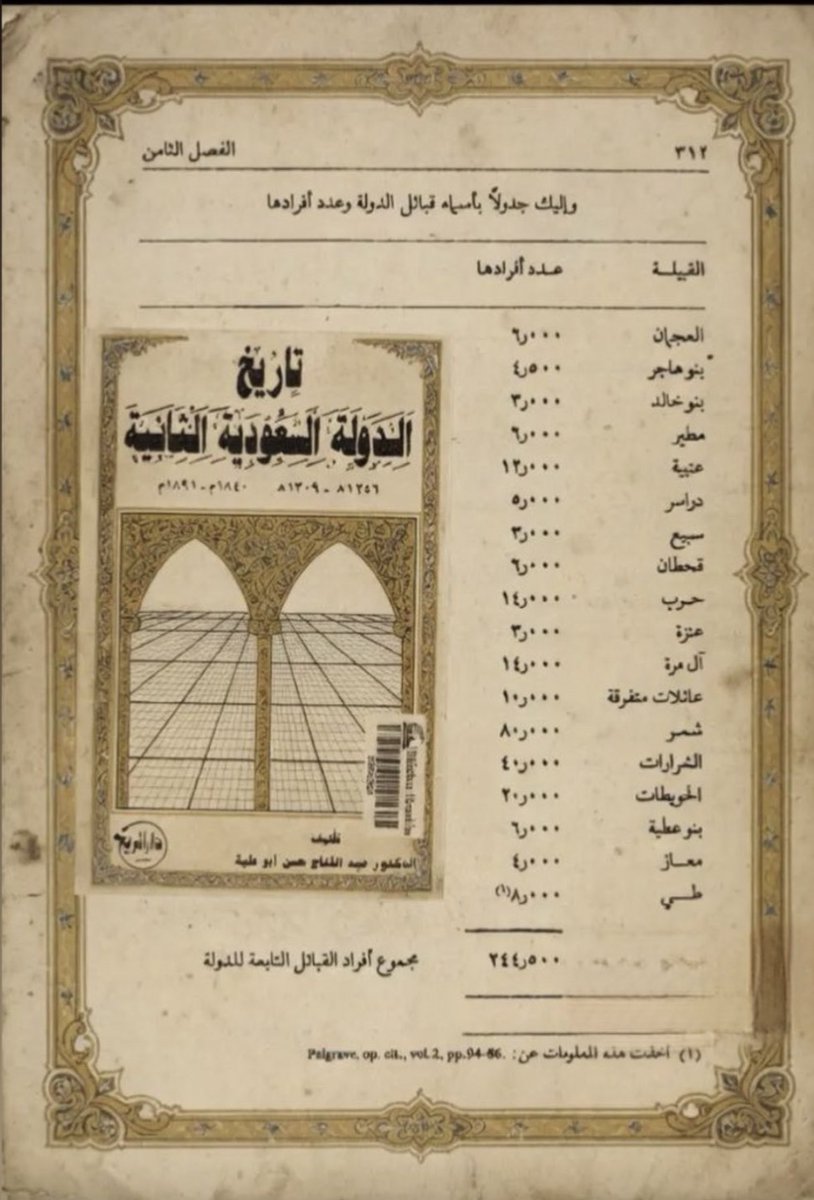 ٣١٢ الفصل الثامن
وإليك جدولاً بأسماء قبائل الدولة وعدد أفرادها
القبيلة عدد أفرادها
العجمان ٦٫٠٠٠
بنو هاجر ٤٫٥٠٠
بنو خالد ٣٫٠٠٠
مطير ٦٫٠٠٠
عتيبة ١٢٫٠٠٠
دواسر ٥٫٠٠٠
سبيع ٣٫٠٠٠
قحطان ٦٫٠٠٠
حرب ١٤٫٠٠٠
عنزة ٣٫٠٠٠
آل مرة ١٤٫٠٠٠
عائلات متفرقة ١٠٫٠٠٠
شمر ٨٠٫٠٠٠
الشرارات ٤٠٫٠٠٠
الحويطات ٢٠٫٠٠٠
بنو عطية ٦٫٠٠٠
معاز ٤٫٠٠٠
طي ٨٫٠٠٠(١)
٢٤٤٫٥٠٠ مجموع أفراد القبائل التابعة للدولة
(١) أخذت هذه المعلومات عن: Palgrave, op. cit., vol. 2, pp. 94-86.
تاريخ
الدولة السعودية الثانية
١٢٥٦هـ - ١٣٠٩هـ ١٨٤٠م - ١٨٩١م
تأليف
الدكتور عبد الفتاح حسن أبو علية
دار المريخ